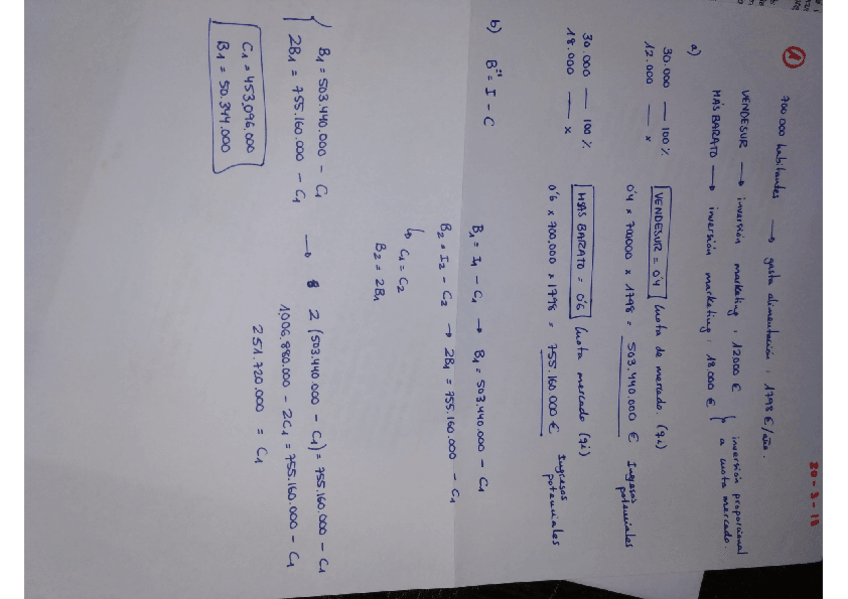 20-3-18
1
700 000 habitantes → gasta alimentación: 1798 €/año.
VENDESUR → inversión marketing: 12000 €
MÁS BARATO → inversión marketing: 18.000 €
inversión proporcional
a cuota mercado.
a)
30.000 — 100 %
12.000 — x
VENDESUR = 0'4 Cuota de mercado. (qi)
0'4 x 700000 x 1798 = 503.440.000 € Ingresos potenciales
30.000 — 100 %
18.000 — x
MÁS BARATO = 0'6 Cuota mercado (qi)
0'6 x 700.000 x 1798 = 755.160.000 € Ingresos potenciales
b) B = I - C
B1 = I1 - C1 → B1 = 503.440.000 - C1
B2 = I2 - C2 → 2B1 = 755.160.000 - C1
↳ C1 = C2
B2 = 2B1
B1 = 503.440.000 - C1
2B1 = 755.160.000 - C1
→ 2 (503.440.000 - C1) = 755.160.000 - C1
1,006.880.000 - 2C1 = 755.160.000 - C1
251.720.000 = C1
C1 = 453,096.000
B1 = 50.344.000